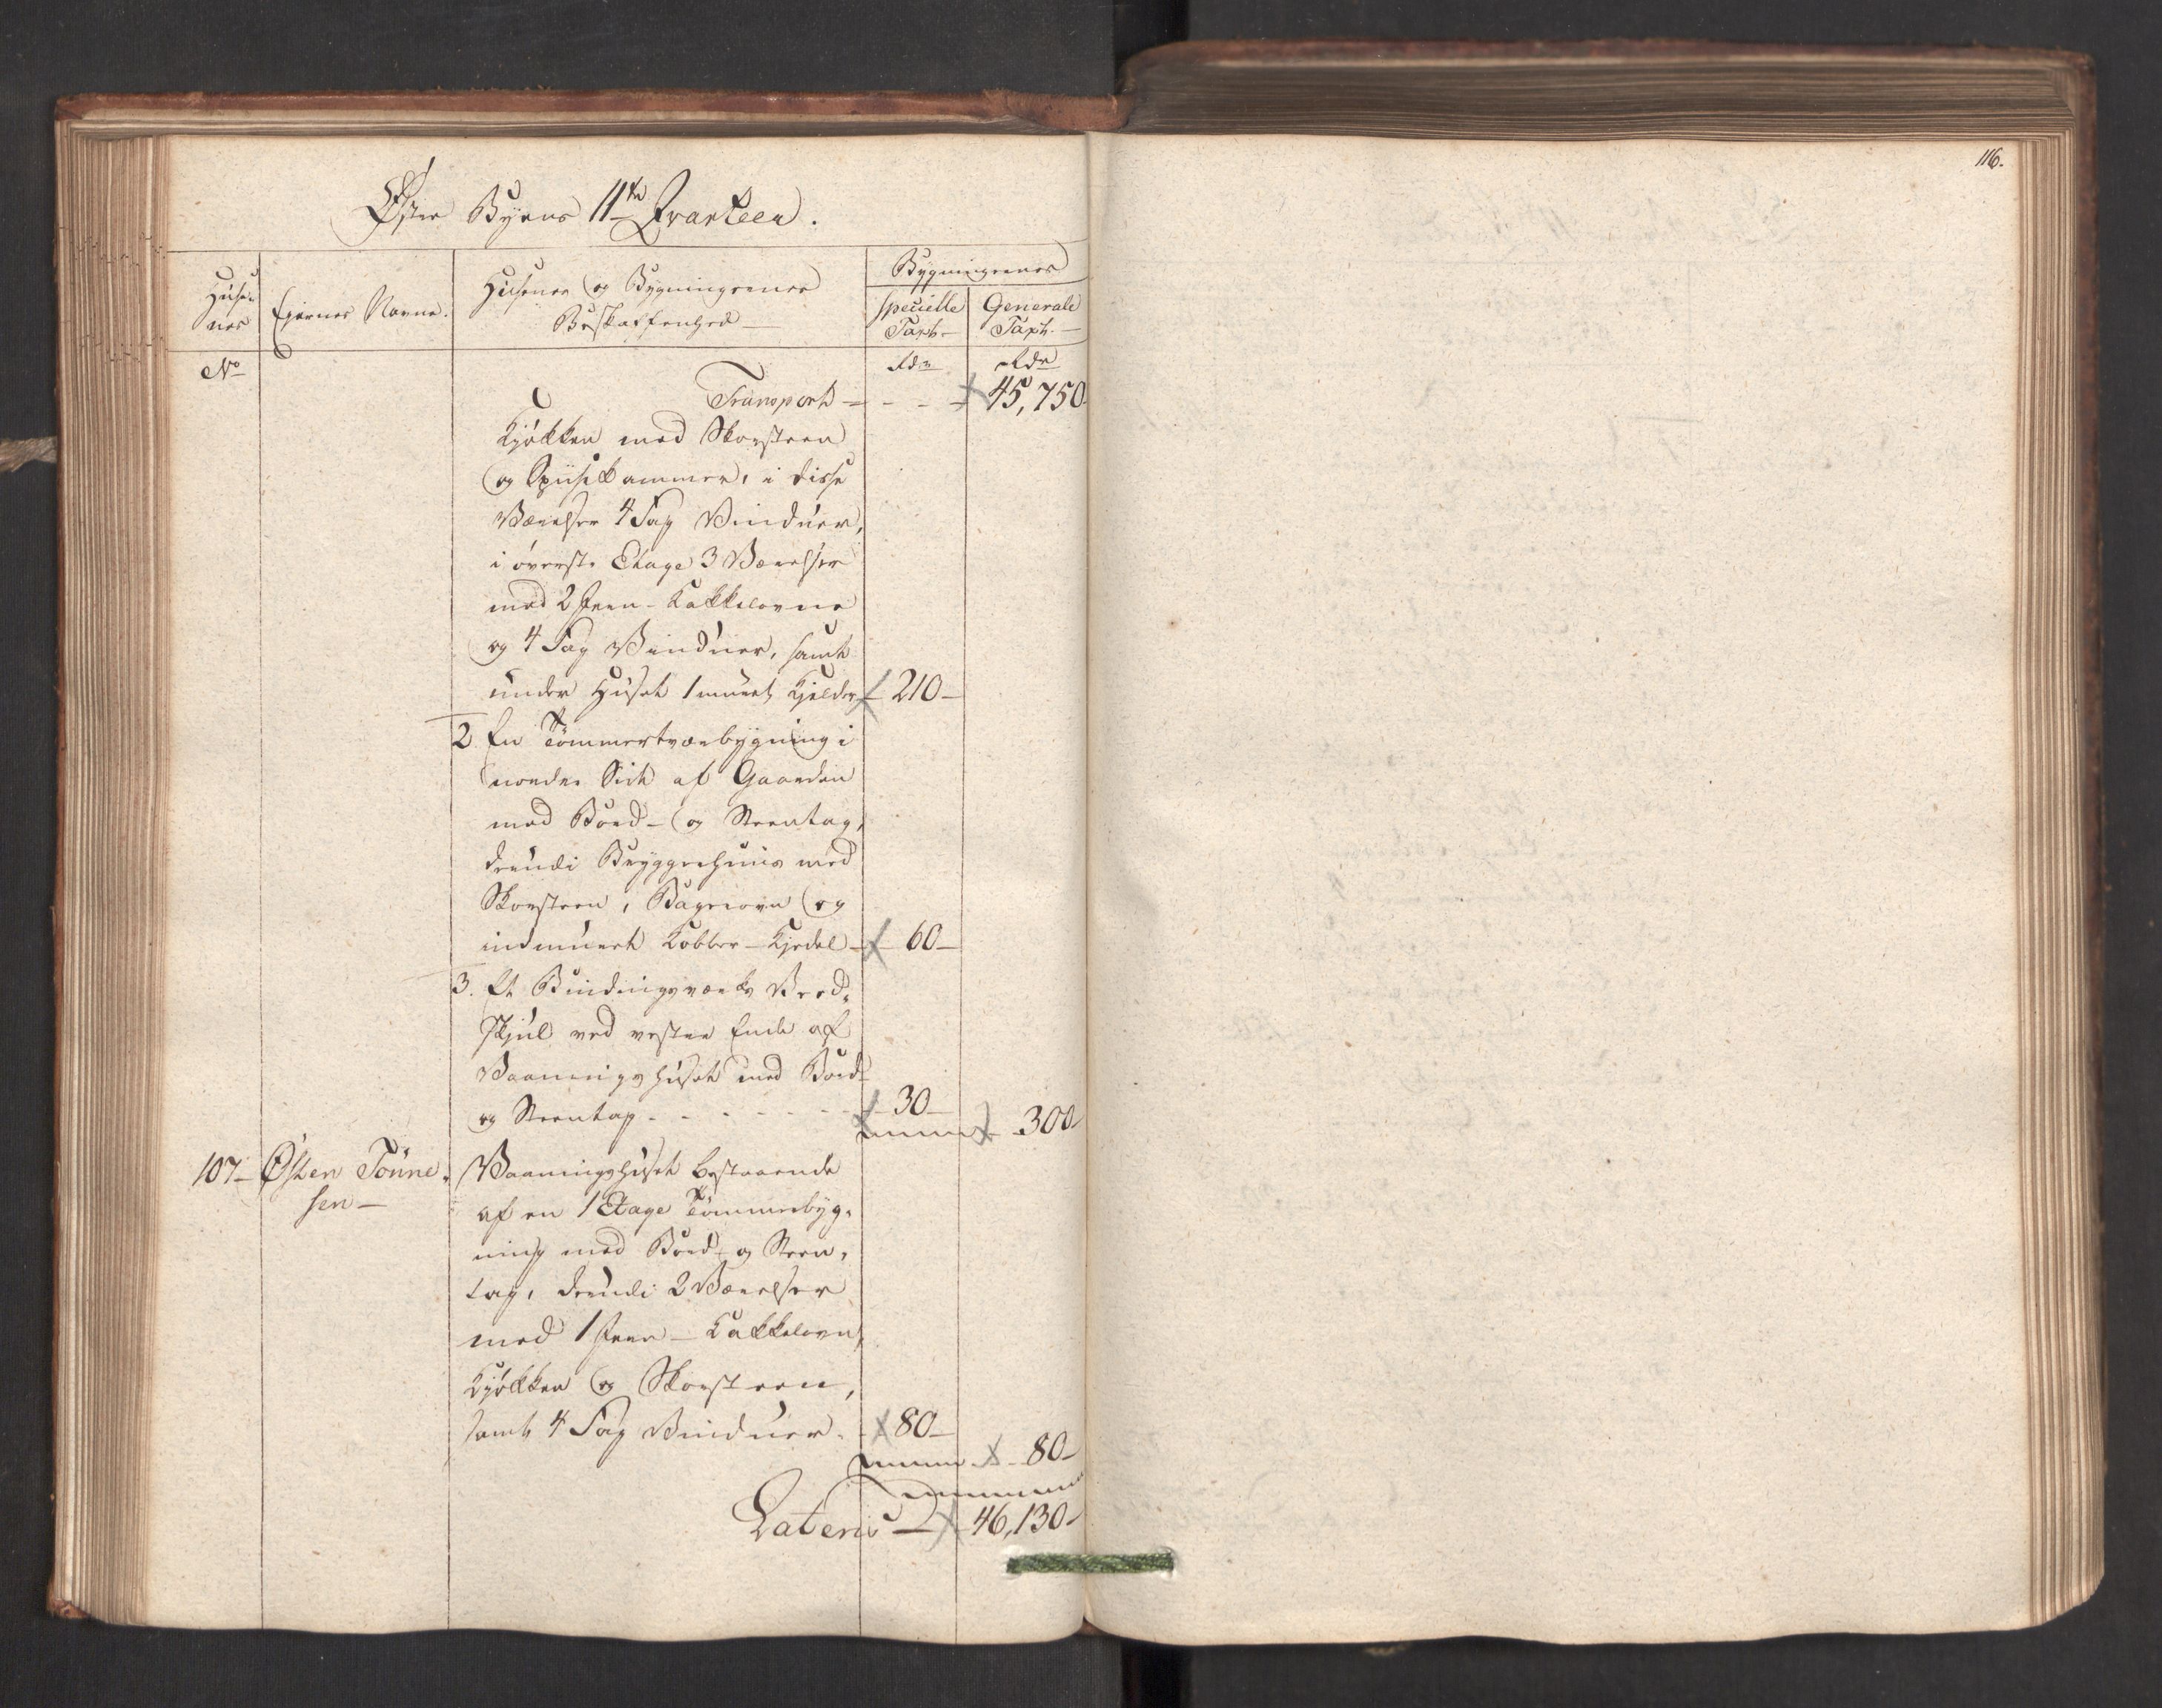 116.
Øster Byens 11te Qvarteer.
Huse-
nes
Ejernes Navne.
Husenes og Bygningernes
Beskaffenhed
Bygningernes
specielle
Taxt.
Generale
Taxt.
No
Rdr
Rdr
Transport = - - - 45,750
Kjøkken med Skorsteen
og Spiisekammer, i disse
Værelser 4 Fag Vinduer,
i øverste Etage 3 Værelser
med 2 Jern-Kakkelovne
og 4 Fag Vinduer, samt
under Huset 1 muret Kjelder 210-
2 En Tømmertværbygning i
nordre Side af Gaarden
med Bord- og Steentag,
derudi Bryggerhuus med
Skorsteen, Bagerovn og
indmuret Kobber-Kjedel - 60-
3. Et Bindingsværks Veed-
skjul ved vestre Ende af
Vaaningshuset med Bord-
og Steentag - - - - - - 30-
300-
107- Østen Tønne-
sen-
Vaaningshuset bestaaende
af en 1 Etage Tømmerbyg-
ning med Bord- og Steen-
tag, derudi 2 Værelser
med 1 Jern-Kakkelovn,
Kjøkken og Skorsteen,
samt 4 Fag Vinduer. - 80-
80-
Lateris - 46,130-